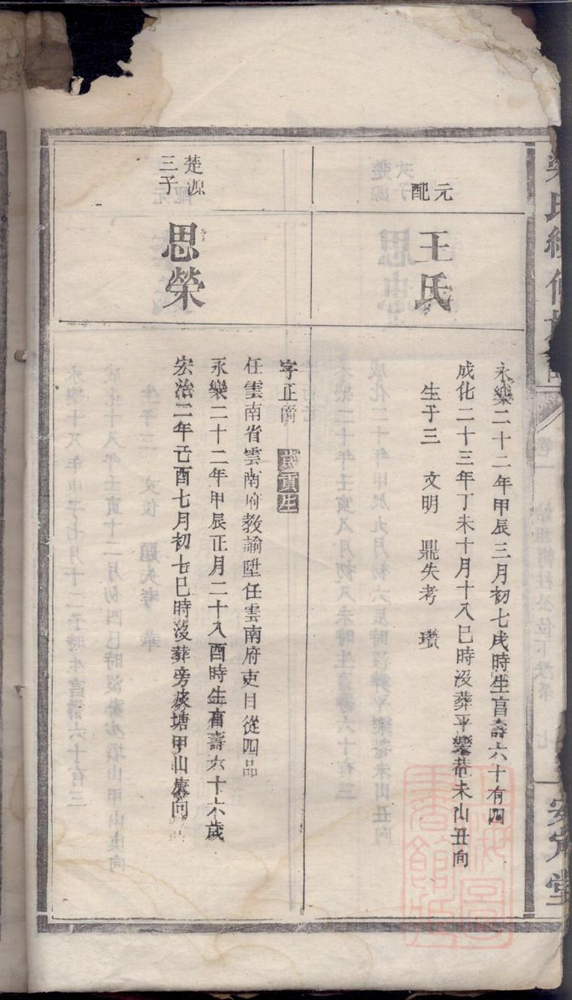 元配
王氏
永樂二十二年甲辰三月初七戌時生享壽六十有四
成化二十三年丁未十月十八巳時沒葬平樂菴未山丑向
生子三 文明 鼎失考 瓚
楚源三子
思榮
字正爵 歲貢生
任雲南省雲南府教諭陞任雲南府吏目從四品
永樂二十二年甲辰正月二十八酉時生享壽六十六歲
宏治二年己酉七月初七巳時沒葬旁陂塘甲山庚向
氏續修
卷一
七
安定堂